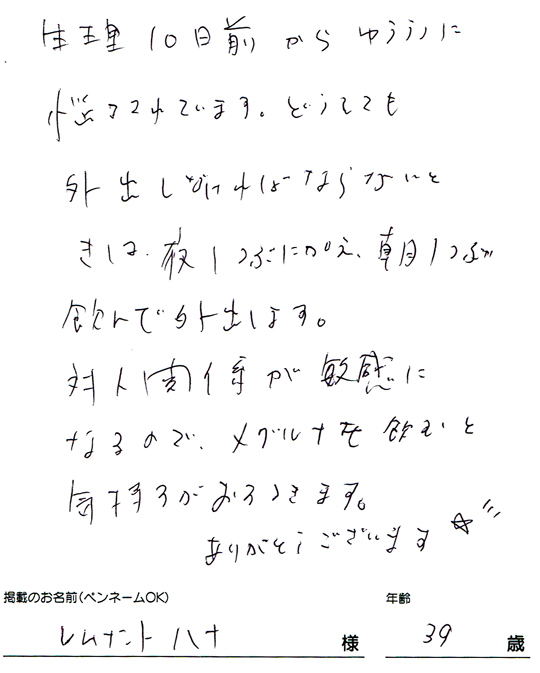 生理10日前からゆううつに
悩まされています。どうしても
外出しなければならないと
きは、夜1つぶにかえ、朝1つぶ
飲んで外出します。
対人関係が敏感に
なるので、メグルナを飲むと
気持ちがおちつきます。
ありがとうございます☆
掲載のお名前(ペンネームOK)
年齢
レムナントハナ 様
39 歳